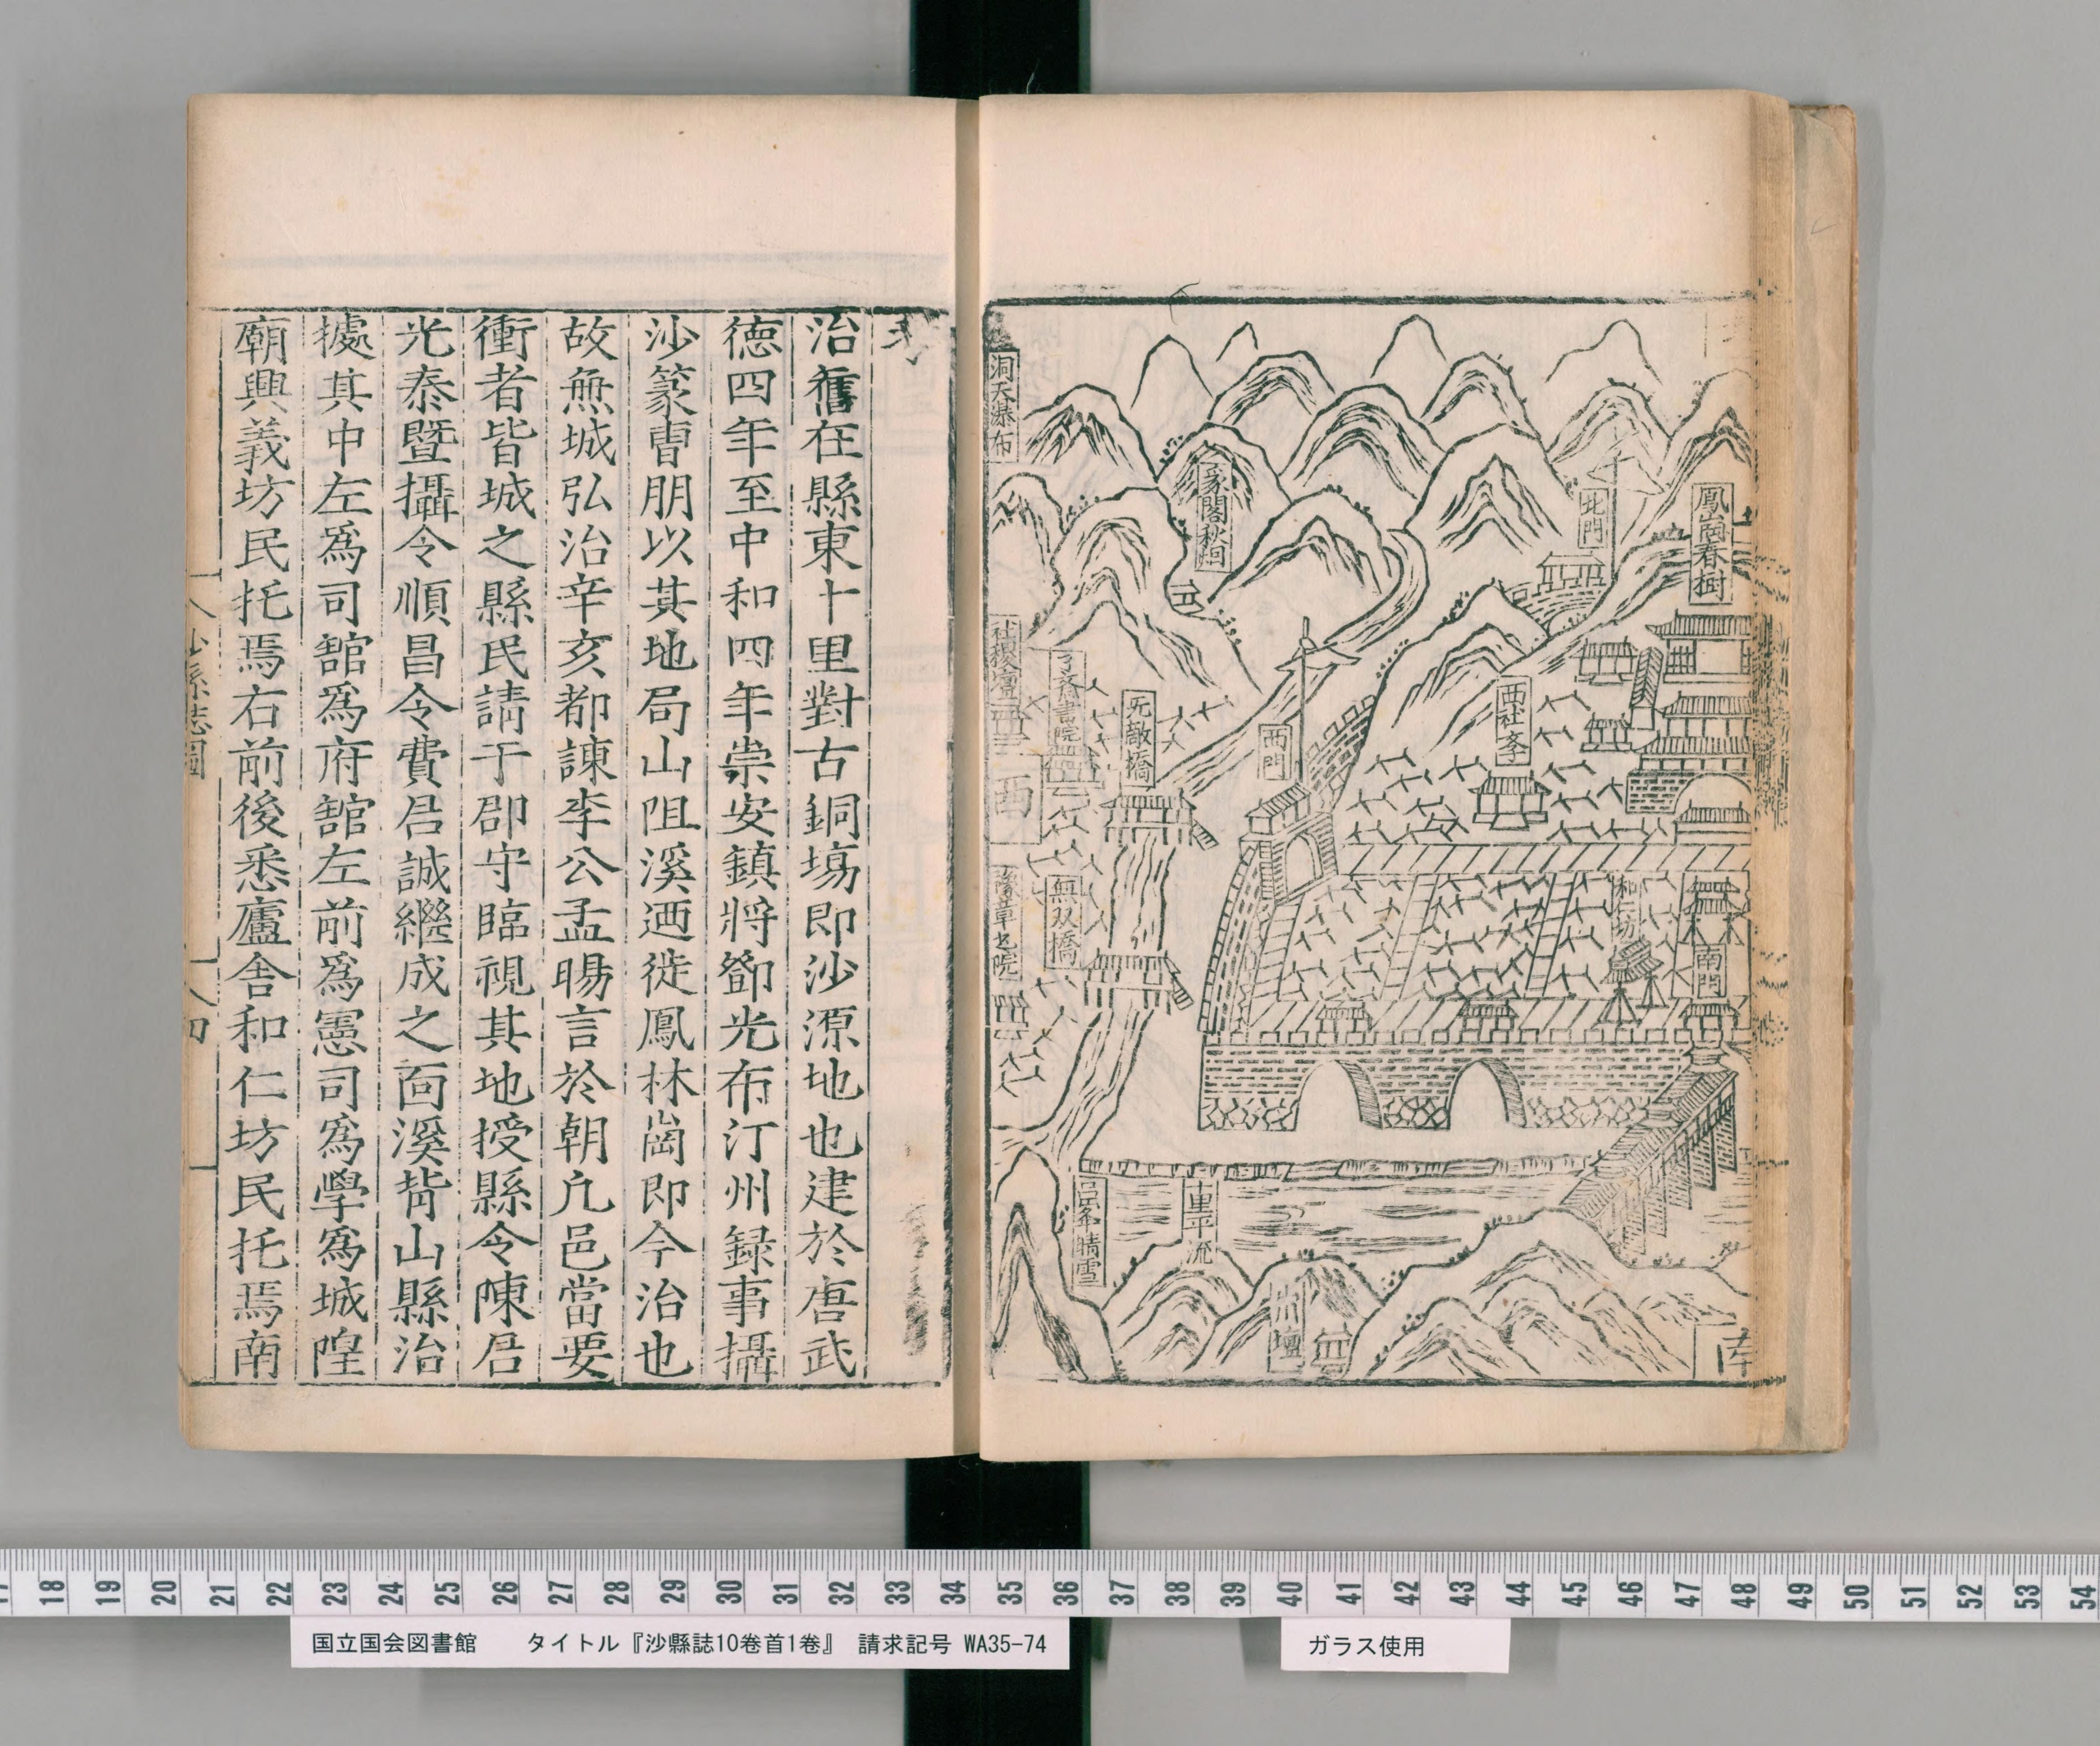 鳳崗春樹
北門
西社斈
南門
和仁坊
西門
豸閣秋囘
无敵橋
無双橋
了齋書院
洞天瀑布
社稷壇
西
豫章書院
十里平流
呂峯晴雪
壇
南
治舊在縣東十里對古銅塲即沙源地也建於唐武
德四年至中和四年崇安鎮將鄧光布汀州録事攝
沙篆曹朋以其地局山阻溪迺徙鳳林崗即今治也
故無城弘治辛亥都諫李公孟暘言於朝凢邑當要
衝者皆城之縣民請于郡守臨視其地授縣令陳君
光泰暨攝令順昌令費君誠繼成之面溪背山縣治
據其中左爲司舘爲府舘左前爲憲司爲學爲城隍
廟興義坊民托焉右前後悉廬舎和仁坊民托焉南
沙縣志圖
四
17 18 19 20 21 22 23 24 25 26 27 28 29 30 31 32 33 34 35 36 37 38 39 40 41 42 43 44 45 46 47 48 49 50 51 52 53 54
国立国会図書館 タイトル『沙縣誌10巻首1巻』 請求記号 WA35-74
ガラス使用